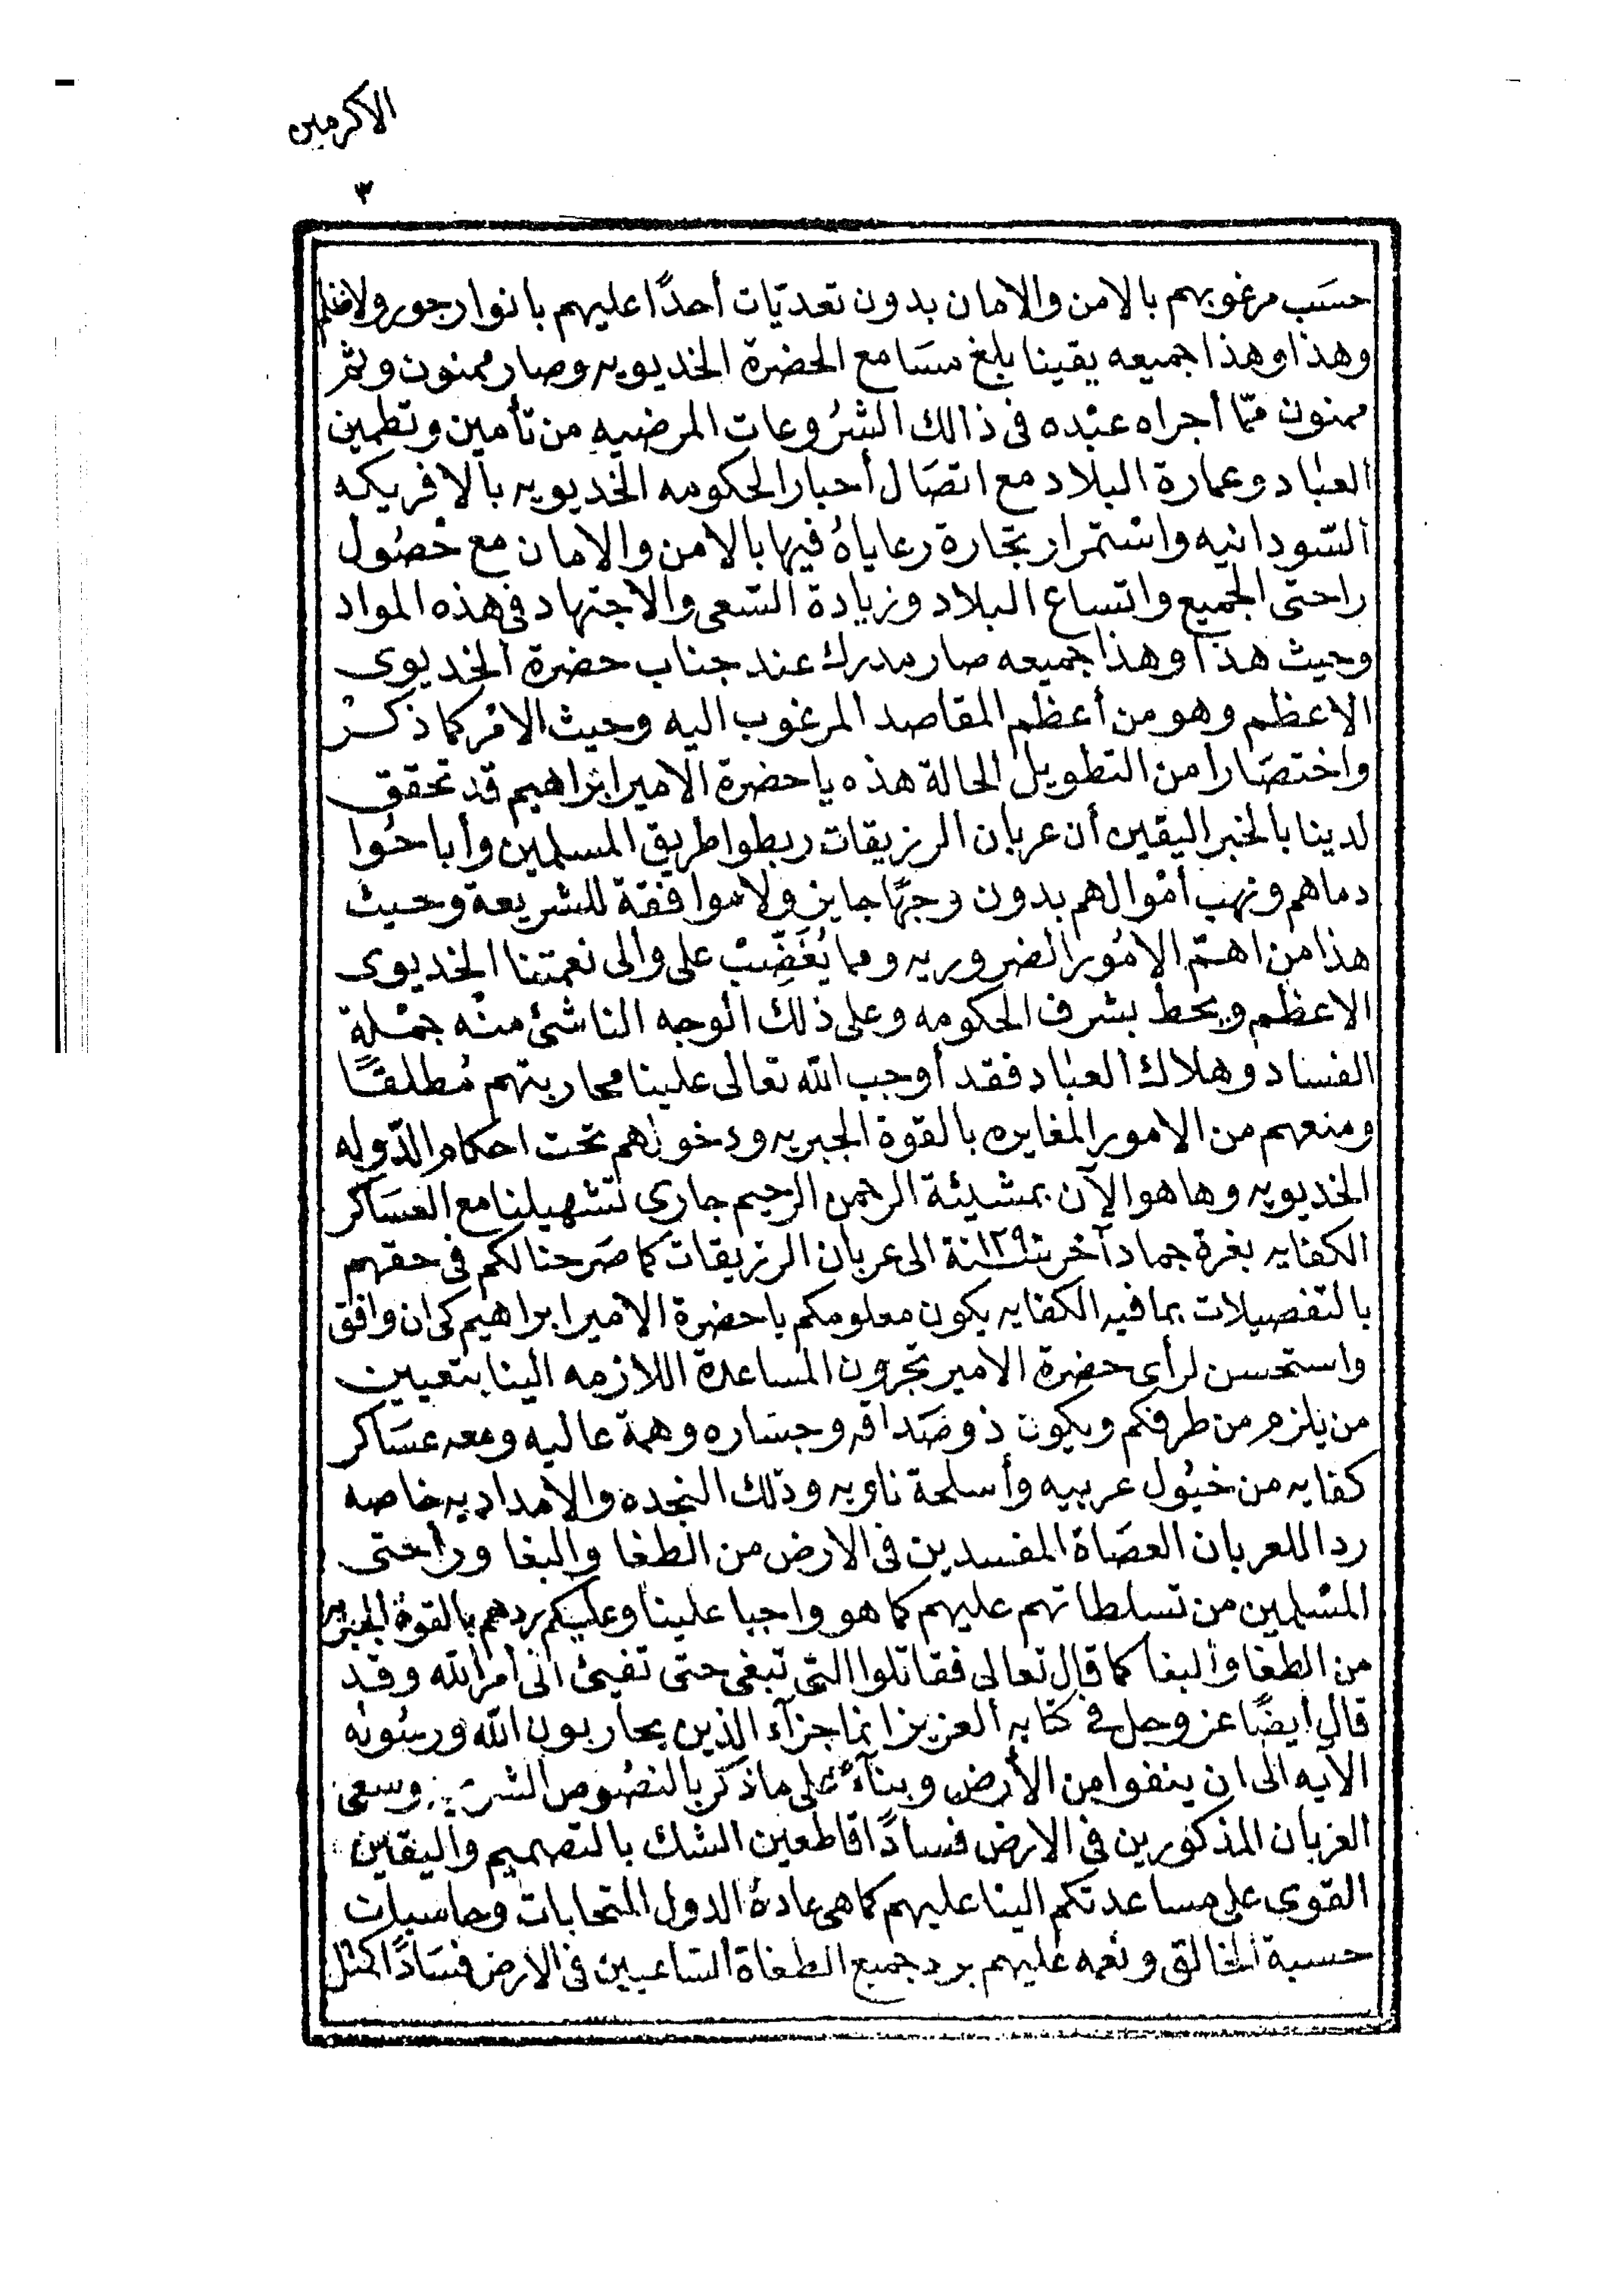 الاكرمين
٣
حسَب مرغوبهم بالامن والامان بدون تعديّات أحدًا عليهم بانواع جور ولا ظلم
وهذا وهذا جميعه يقينا بلغ مسَامع الحضرة الخديويه وصار ممنون وثم
ممنون ممّا أجراه عبْده فى ذالك الشرُوعات المرضيه من تأمين وتطمين
العباد وعمارة البلاد مع اتصَال أحبار الحكومه الخديويه بالافريكه
السّودانيه واسْتمرار تجارة رعاياهُ فيها بالامن والامان مع حُصُول
راحتى الجميع واتساع البلاد وزيادة السّعى والاجتهاد فى هذه المواد
وحيث هذا وهذا جميعه صار مدرك عند جناب حضرة الخديوى
الاعظم وهو من أعظم المقاصد المرغوب اليه وحيث الامْر كما ذكر
واختصَارا من التطويل الحالة هذه ياحضرة الامير ابراهيم قد تحقق
لدينا بالخبر اليقين أن عربان الرزيقات ربطوا طريق المسلمين وأباحُوا
دماهم ونهب أمْوالهم بدون وجهًا جايز ولا موافقة للشريعة وحيث
هذا من اهتمّ الامُور الضروريه ومما يُغَضِّبْ على والى نعمتنا الخديوى
الاعظم ويحط بشرف الحكومه وعلى ذلك الوجه الناشئ منْه جمْلة
الفساد وهلاك العباد فقد أوجب الله تعالى علينا محاربتهم مُطلقًا
ومنعهم من الامور المغايره بالقوة الجبريه ودخولهم تحت احكام الدّوله
الخديويه وها هو الآن بمشيئة الرحمن الرحيم جارى تشهيلنا مع العسَاكر
الكفايه بغرة جماد آخر سنة ١٢٩٠ الى عربان الرزيقات كما صَرحنا لكم فى حقهم
بالتفصيلات بما فيه الكفايه يكون معلومكم ياحضرة الامير ابراهيم كى ان وافق
واستحسن لرأى حضرة الامير تجرون المساعدة اللازمه الينا بتعيين
من يلزم من طرفكم ويكون ذو صَداقه وجسَاره وهمة عاليه ومعه عسَاكر
كفايه من خيُول عربيه وأسلحة ناريه وذلك النجده والامداديه خاصه
ردا للعربان العصَاة المفسدين فى الارض من الطغا والبغا وراحتى
المسْلمين من تسلطاتهم عليهم كما هو واجبا علينا وعليكم ردهم بالقوة الجبريه
من الطغا والبغا كما قال تعالى فقاتلوا التى تبغى حتى تفيئ الى أمر الله وقد
قال أيضًا عز وجل فى كتابه العزيز انما جزآء الذين يحاربون الله ورسُوله
الآيه الى ان ينفوا من الأرض وبنآءً على ما ذكر بالنصُوص وسعى
العربان المذكورين فى الارض فسادًا قاطعين الشك بالتصميم واليقين
القوى على مساعدتكم الينا عليهم كما هى عادة الدول المتحابات
حسبة الخالق ونعمه عليهم برد جميع الطغاة السّاعيين فى الارض فسَادًا كمثل